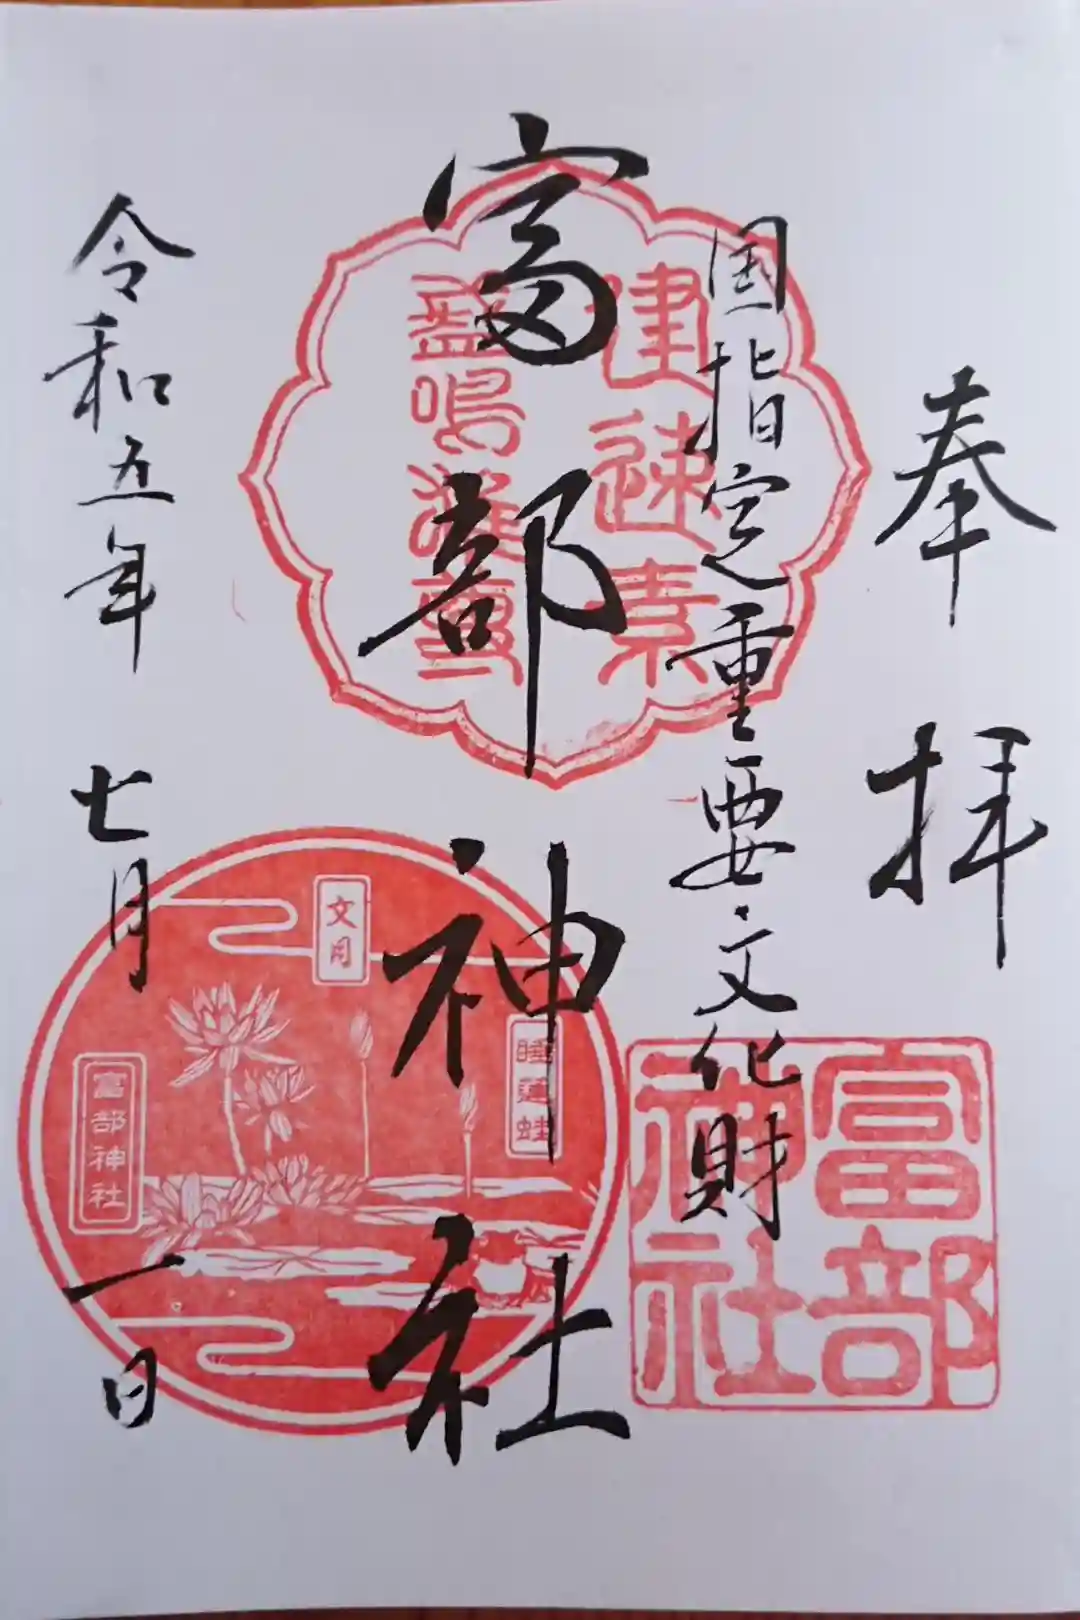 奉拝
国指定重要文化財
富部神社
令和五年 七月 一日
建速素
盞嗚尊
富部
神社
文月
睡蓮蛙
富部神社